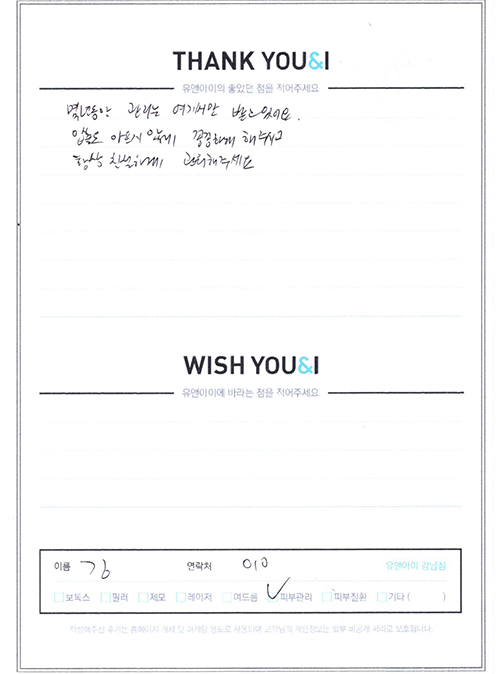 THANK YOU&I
유앤아이의 좋았던 점을 적어주세요
몇년동안 관리는 여기서만 받고있어요.
압출도 아프지 않게 꼼꼼하게 해주시고
항상 친절하게 관리해주세요
WISH YOU&I
유앤아이에 바라는 점을 적어주세요
이름 김 연락처 010 유앤아이 강남점
보톡스 필러 제모 레이저 여드름 피부관리 피부질환 기타 ( )
작성해주신 후기는 홈페이지 게재 및 마케팅 용도로 사용되며 고객님의 개인정보는 일부 비공개 처리로 보호됩니다.